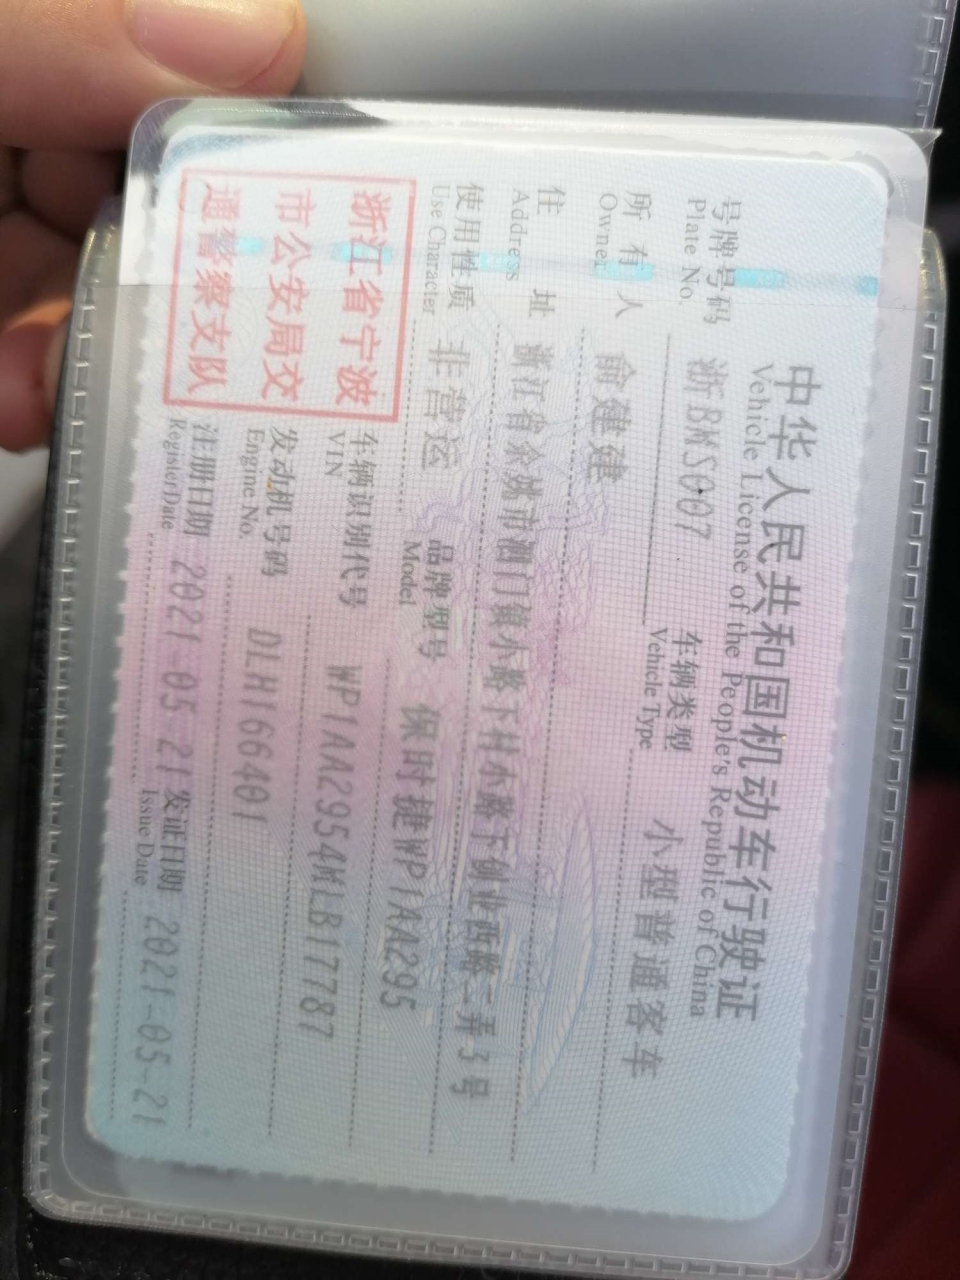 中华人民共和国机动车行驶证
Vehicle License of the People's Republic of China
号牌号码 浙BMS007 车辆类型 小型普通客车
Plate No. Vehicle Type
所有人 俞建建
Owner
住址 浙江省余姚市泗门镇小路下村小路下创业西路三弄3号
Address
使用性质 非营运 品牌型号 保时捷WP1AA295
Use Character Model
浙江省宁波
市公安局交
通警察支队
车辆识别代号 WP1AA2954MLB17787
VIN
发动机号码 DLH166401
Engine No.
注册日期 2021-05-21 发证日期 2021-05-21
Register Date Issue Date